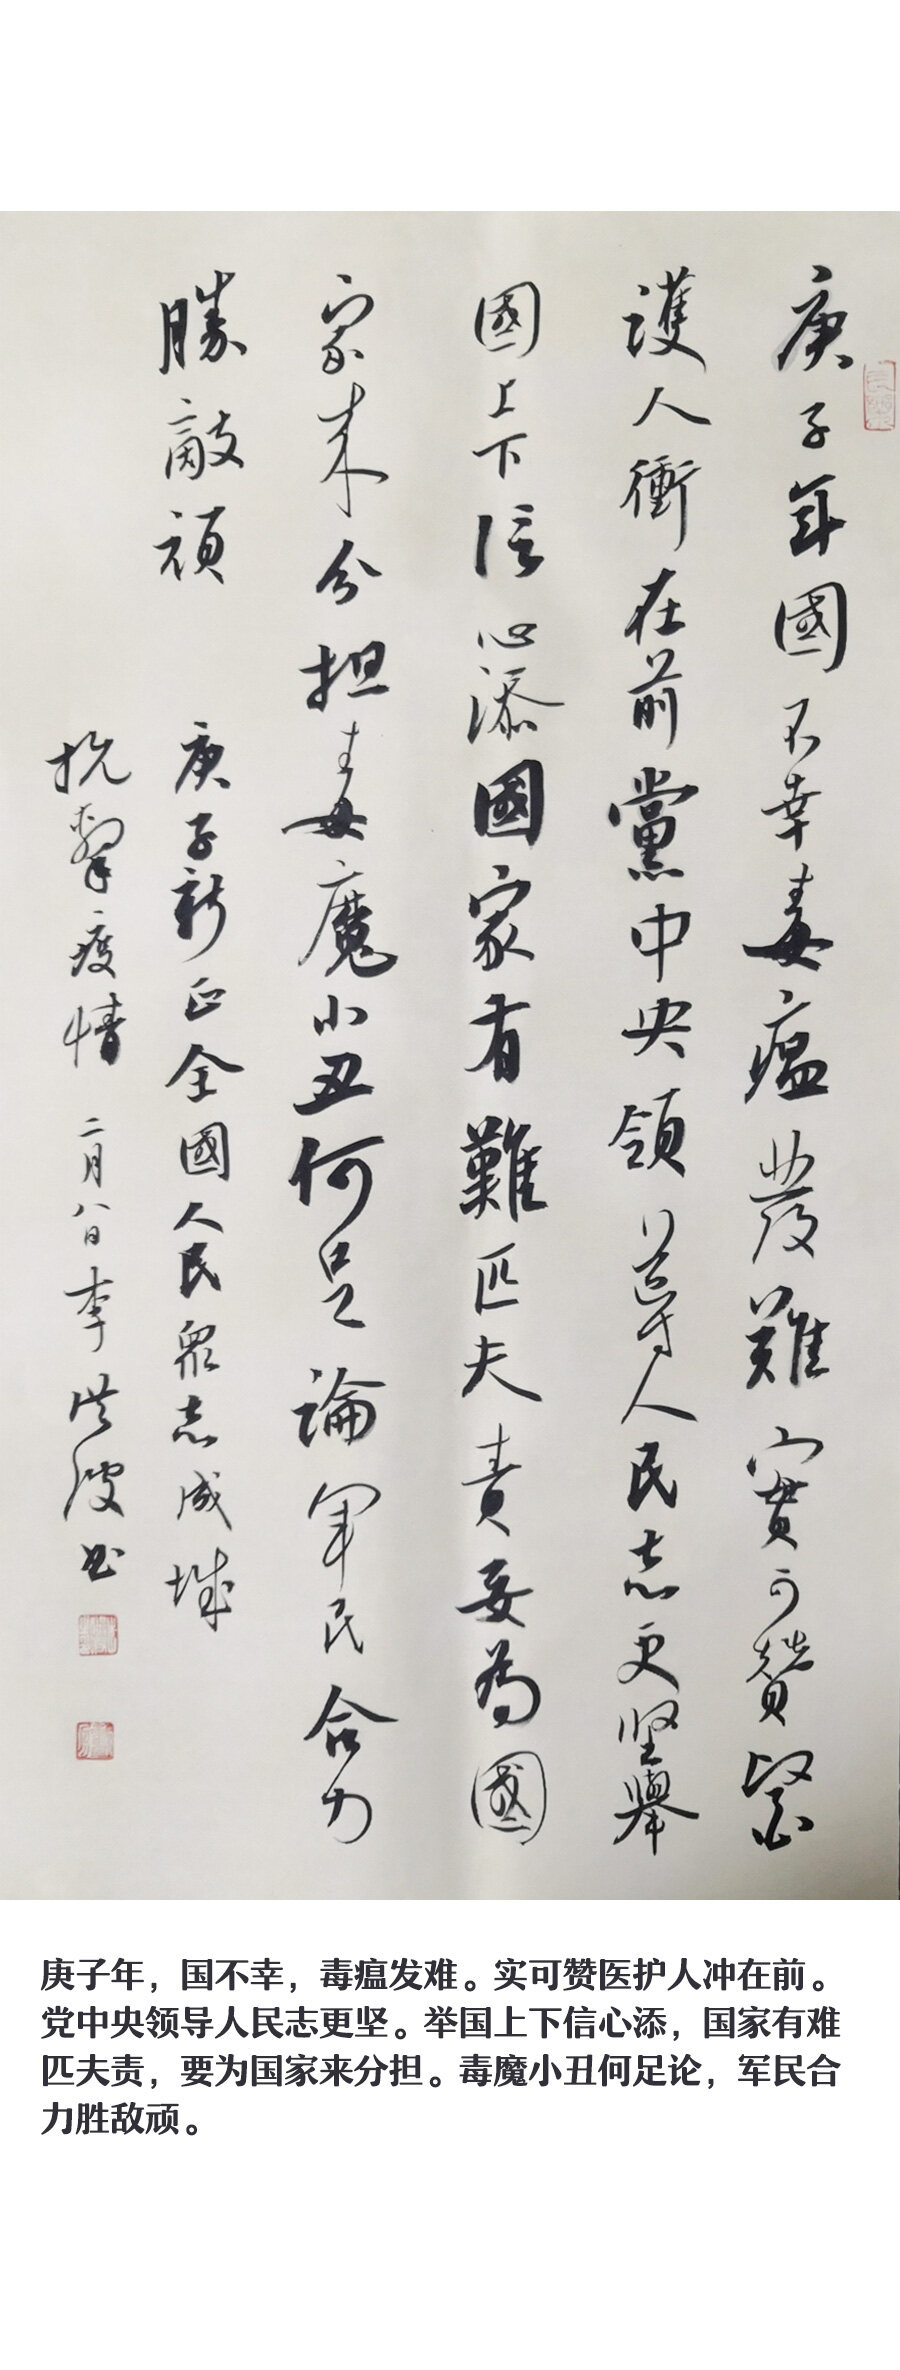 庚子年國不幸毒瘟发難實可赞醫
護人衝在前黨中央領导人民志更坚舉
國上下信心添國家有難匹夫責要为國
家来分担毒魔小丑何足論军民合力
勝敵頑
庚子新正全國人民眾志成城
抗擊疫情 二月八日李洪波书
庚子年，国不幸，毒瘟发难。实可赞医护人冲在前。
党中央领导人民志更坚。举国上下信心添，国家有难
匹夫责，要为国家来分担。毒魔小丑何足论，军民合
力胜敌顽。